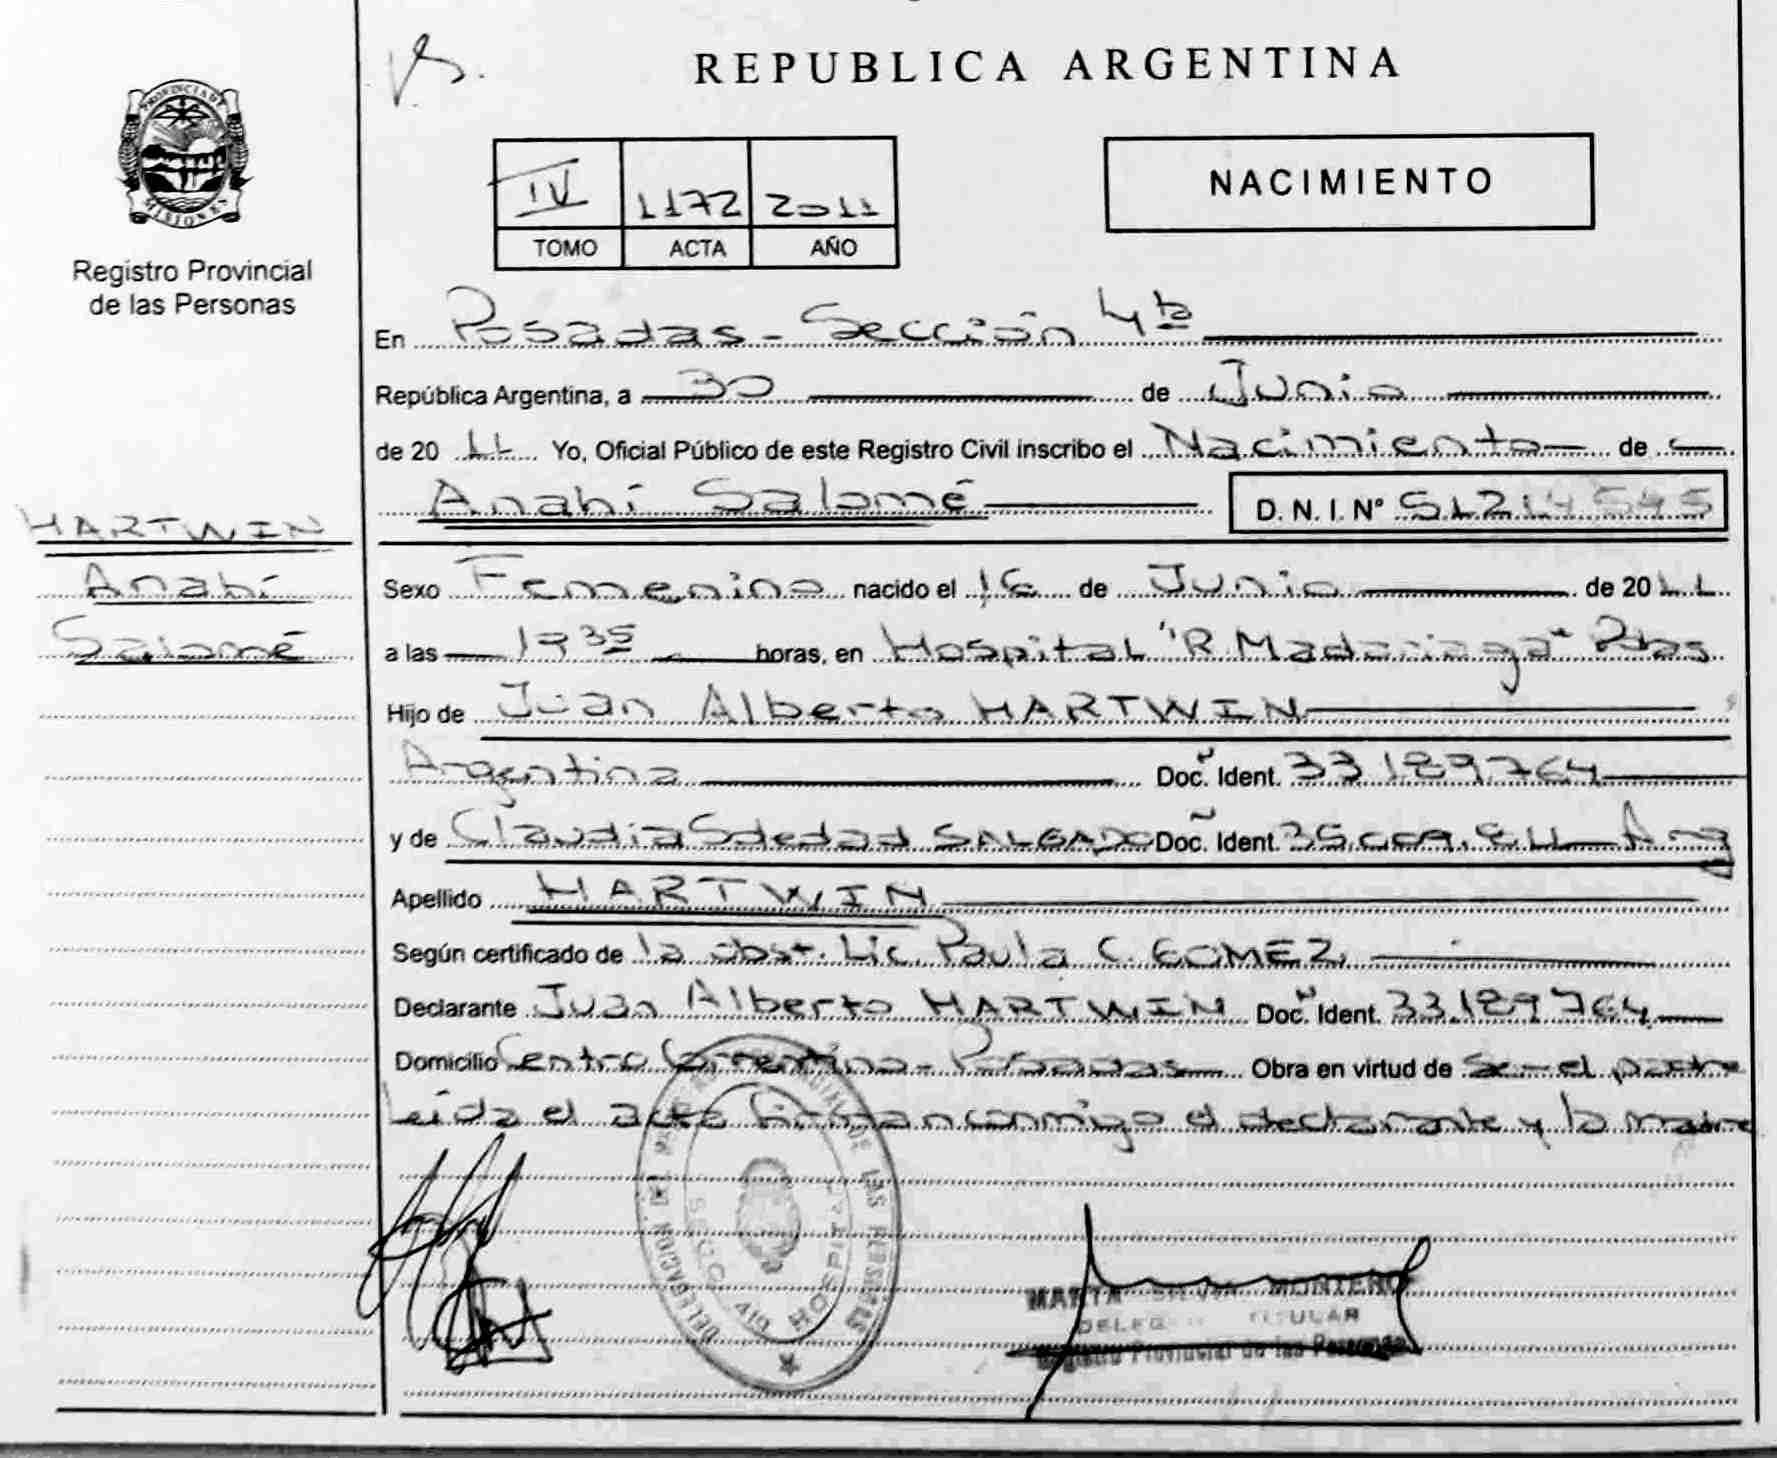 REPUBLICA ARGENTINA
PROVINCIA DE MISIONES
Registro Provincial
de las Personas
IV 1172 2011
TOMO ACTA AÑO
NACIMIENTO
En Posadas - Sección 4ta
República Argentina, a 30 de Junio
de 2011 Yo, Oficial Público de este Registro Civil inscribo el Nacimiento de
Anahí Salomé D. N. I. Nº 51214545
HARTWIN
Anahí
Salomé
Sexo Femenino nacido el 16 de Junio de 2011
a las 19 35 horas, en Hospital "R. Madariaga" Pdas
Hijo de Juan Alberto HARTWIN
Argentina Doc. Ident. 33.189.764
y de Claudia Soledad SALGADO Doc. Ident. Arg
Apellido HARTWIN
Según certificado de la obst. Lic. Paula C. GOMEZ
Declarante Juan Alberto HARTWIN Doc. Ident. 33.189.764
Domicilio Centro Correntino - Posadas Obra en virtud de Se el padre
Leída el acta firman conmigo el declarante y la madre
DELEGACION DE LAS PERSONAS
SECC. 4ta HOSPITAL
MARTA SILVIA MONTERO
DELEGADA TITULAR
Registro Provincial de las Personas